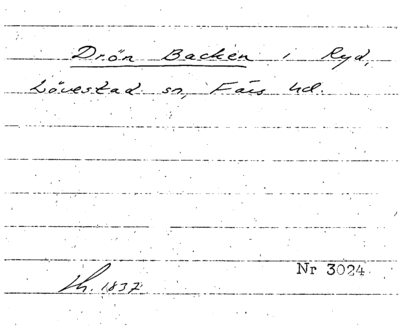 Drön Backen i Ryd,
Lövestad sn, Färs hd.
Nr 3024
1837